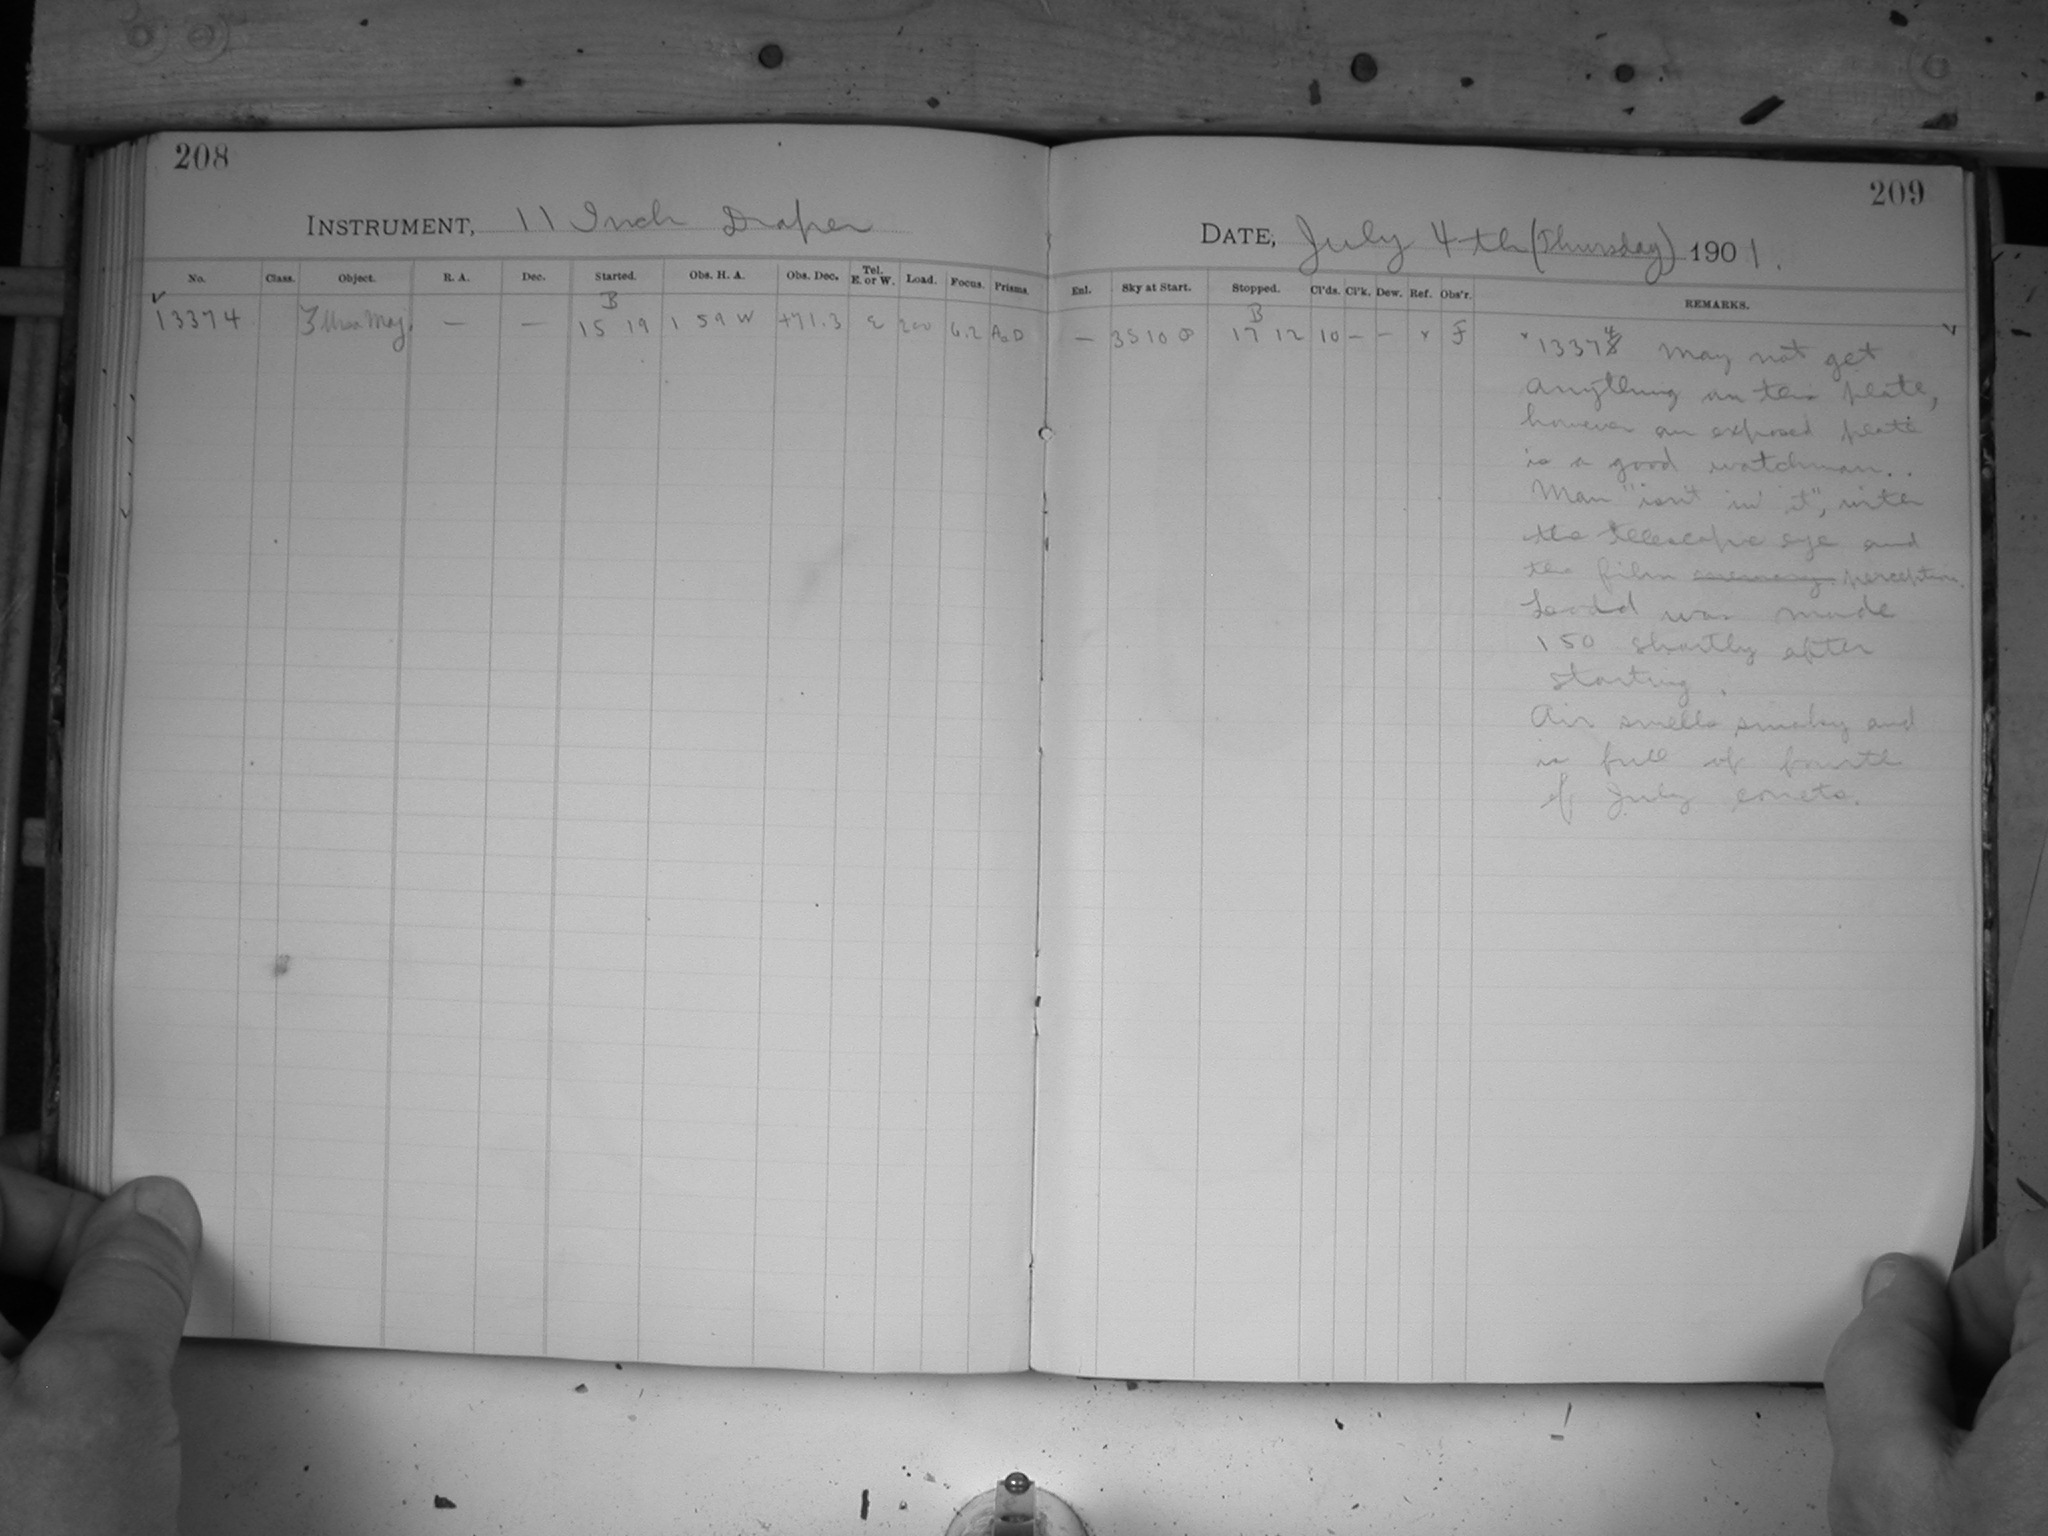 208
INSTRUMENT, 11 Inch Draper
No. Class. Object. R. A. Dec. Started. Obs. H. A. Obs. Dec. Tel. E. or W. Load. Focus. Prisms.
B
13374 — — 15 19 1 59 W +71.3 E 200 6.2
209
DATE, July 4th (Thursday) 1901.
Enl. Sky at Start. Stopped. Cl'ds. Cl'k. Dew. Ref. Obs'r. REMARKS.
B
— 17 12 10 — — x F
x 13374 May not get
anything on this plate,
however an exposed plate
is a good watchman..
Man "isn't in it", with
the telescopic eye and
the film perception.
Load was made
150 shortly after
starting.
Air smells smoky and
is full of fourth
of July comets.